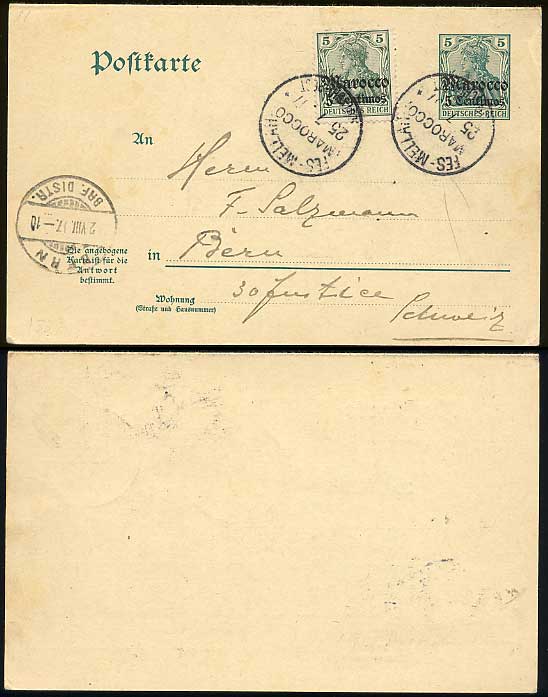 Postkarte
5 5
Marocco
5 Centimos
DEUTSCHES REICH
5 5
Marocco
5 Centimos
DEUTSCHES REICH
FES-MELLAH
MAROCCO
25
FES-MELLAH
MAROCCO
25
An
Herrn
F. Salzmann
BRF. DISTR.
2.VIII. 17.–10
BERN
Die angebogene
Karte ist für die
Antwort
bestimmt.
in Bern
Wohnung
(Straße und Hausnummer)
Schweiz